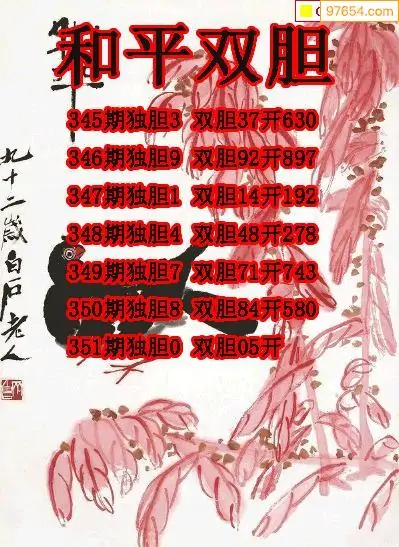 97654.com
和平双胆
345期独胆3 双胆37开630
346期独胆9 双胆92开897
347期独胆1 双胆14开192
348期独胆4 双胆48开278
349期独胆7 双胆71开743
350期独胆8 双胆84开580
351期独胆0 双胆05开
九十二岁白石老人